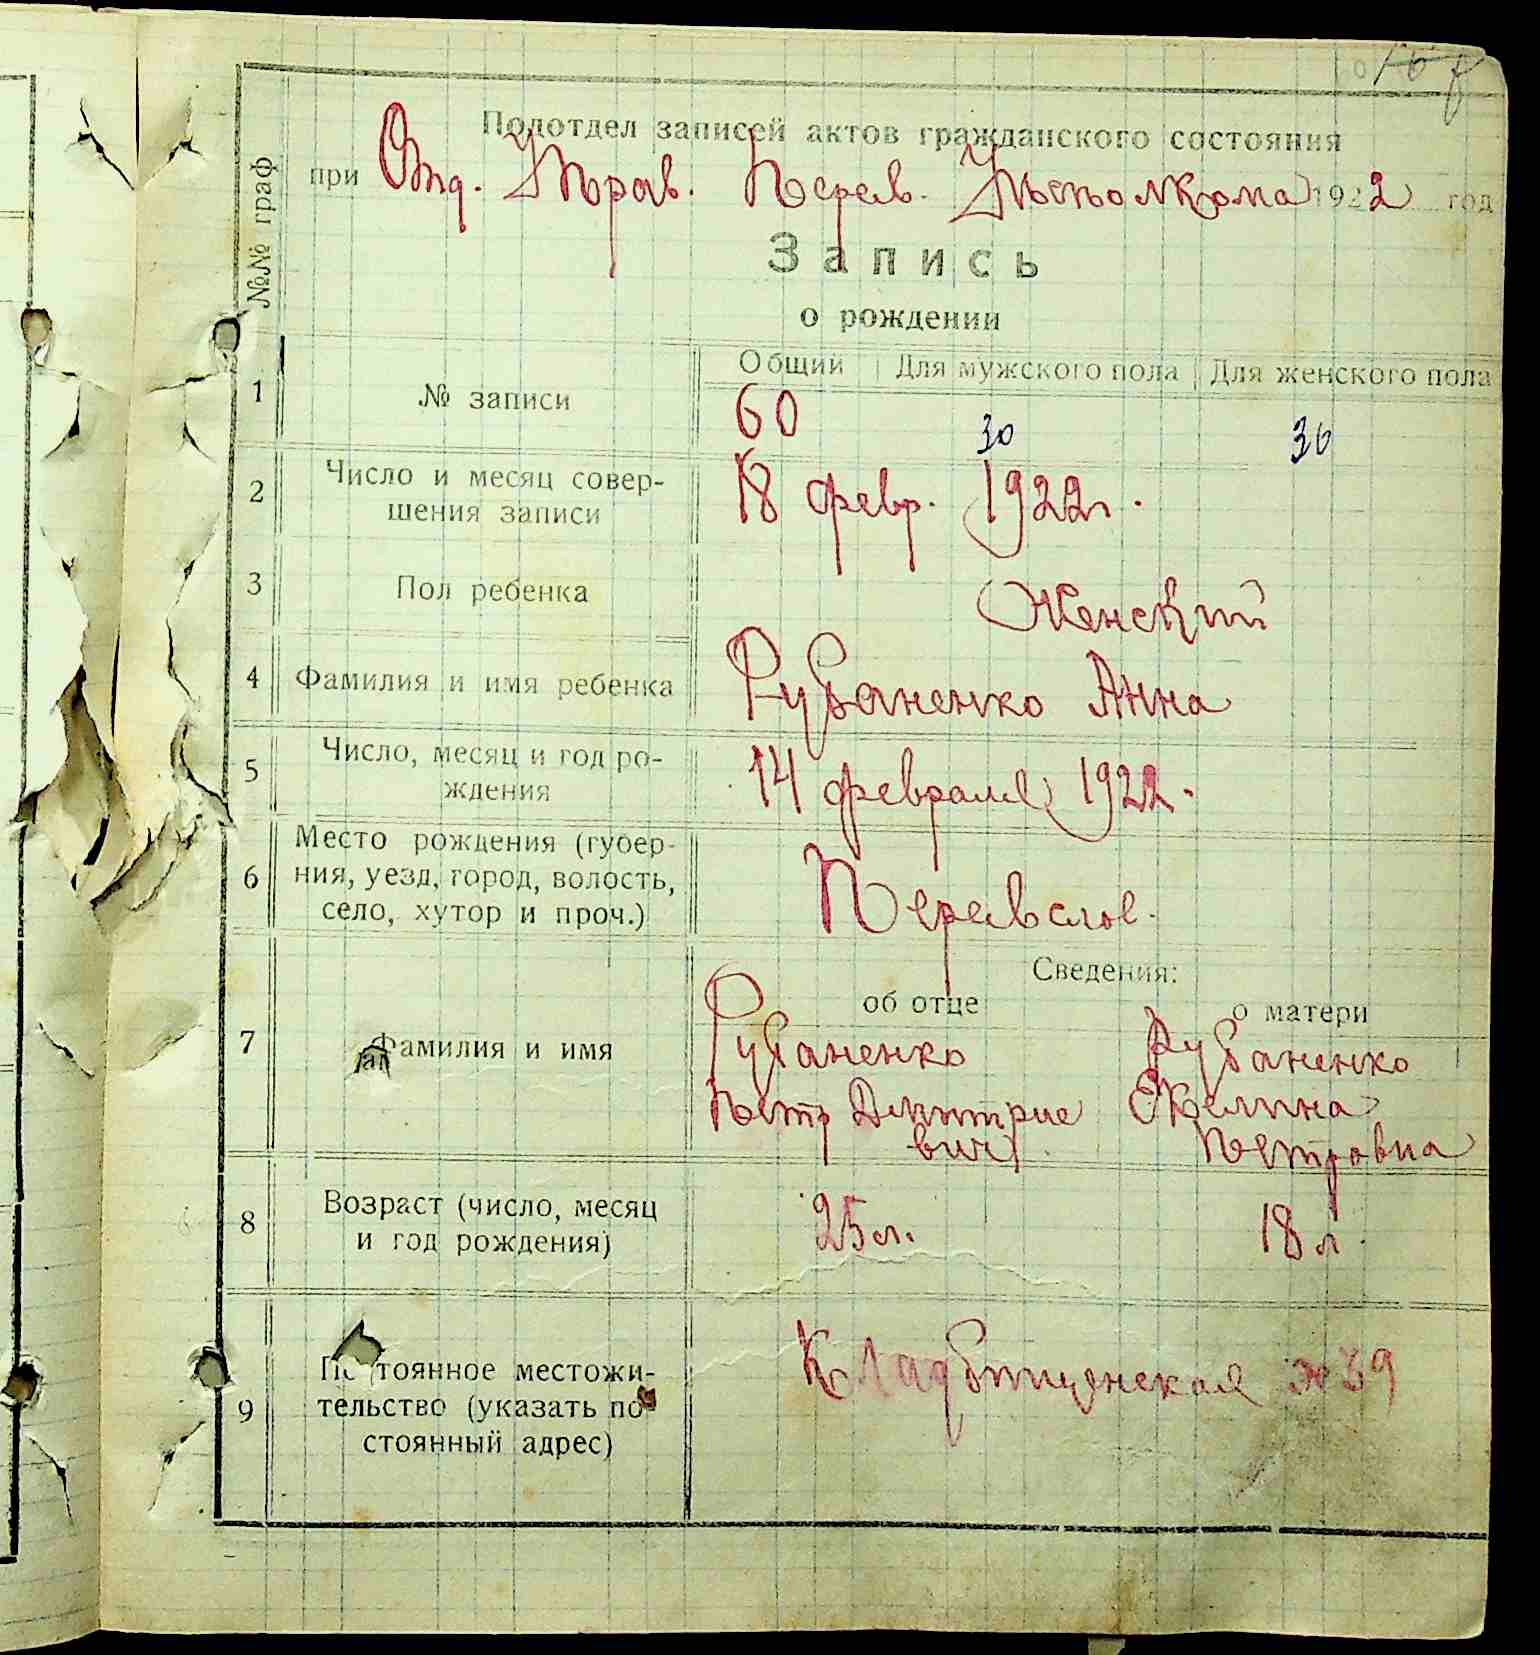 Подотдел записей актов гражданского состояния
при Отд. Управ. Перев. Исполкома 1922 год
Запись
о рождении
№№ граф
Общий Для мужского пола Для женского пола
1 № записи 60 30 30
2 Число и месяц совер-
шения записи 18 февр. 1922г.
3 Пол ребенка Женский
4 Фамилия и имя ребенка Рубаненко Анна
5 Число, месяц и год ро-
ждения 14 февраля 1922.
6 Место рождения (губер-
ния, уезд, город, волость,
село, хутор и проч.)
Сведения:
об отце о матери
7 Фамилия и имя Рубаненко Рубаненко
Петр Дмитрие
вич Петровна
8 Возраст (число, месяц
и год рождения) 25 л. 18 л.
9 Постоянное местожи-
тельство (указать по-
стоянный адрес) Кладбищенская № 39